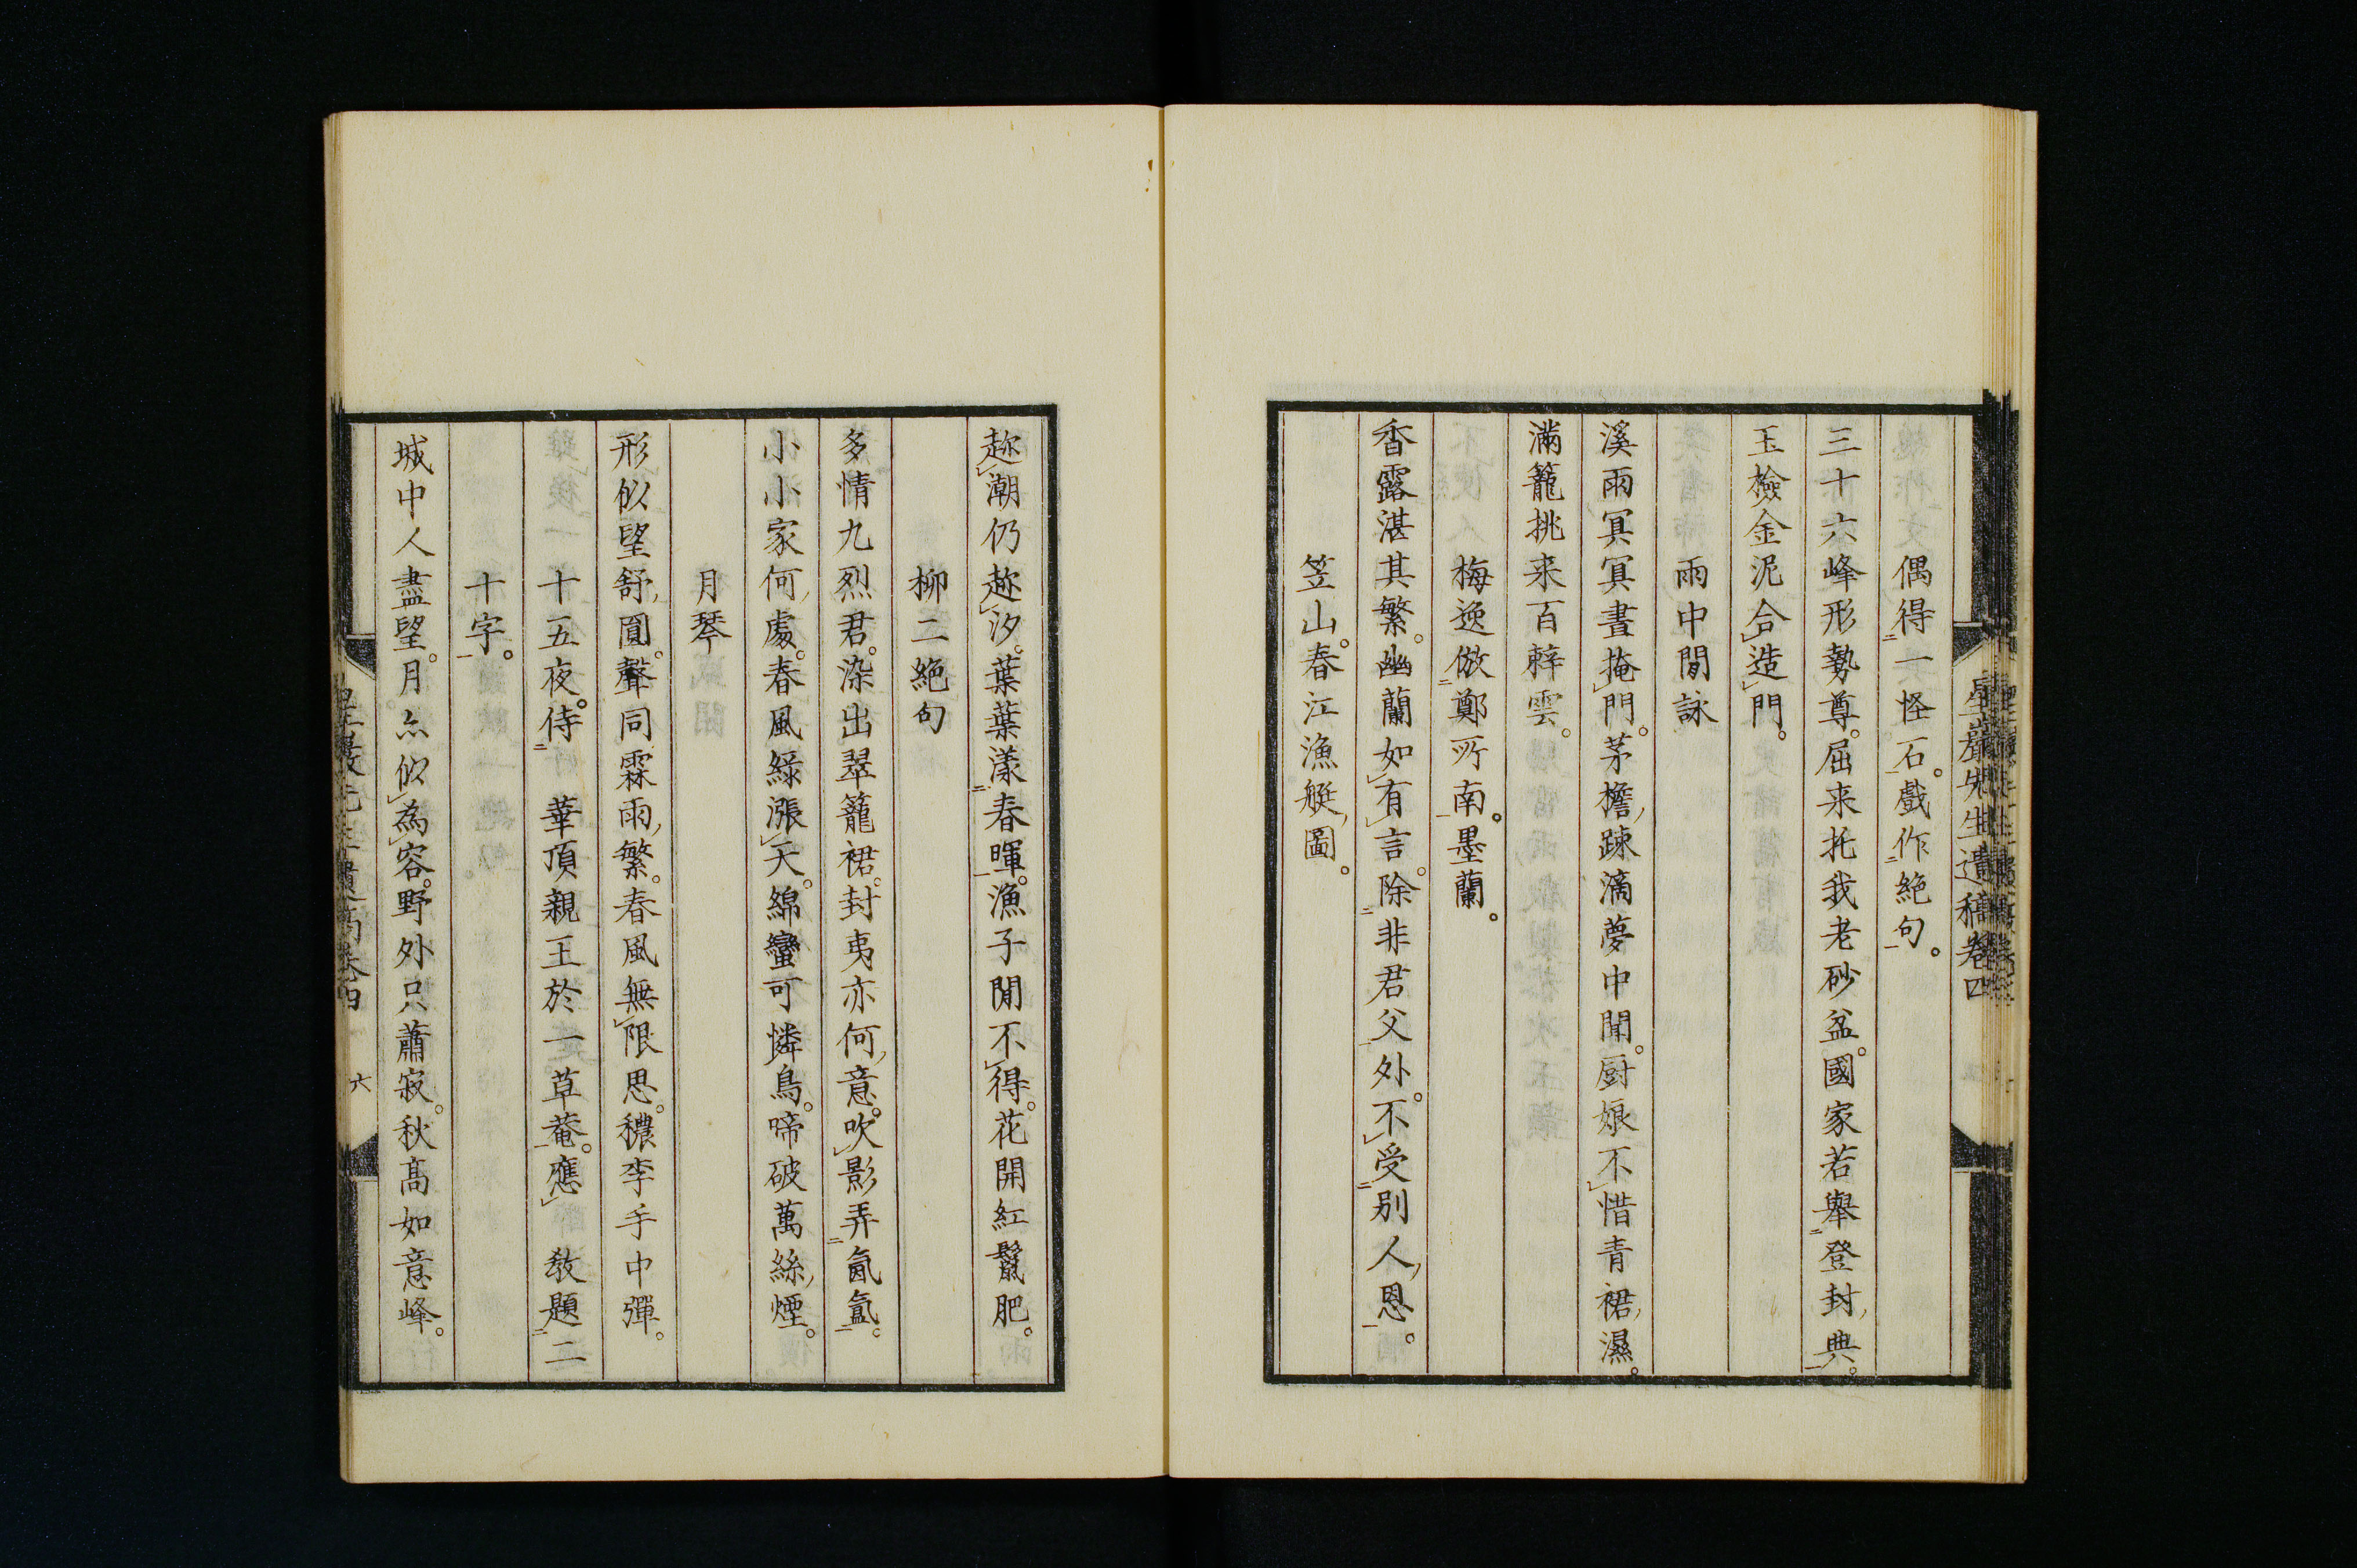 偶得一怪石。戲作絶句。
三十六峰形勢尊。屈来托我老砂盆。國家若擧登封典。
玉檢金泥合造門。
雨中閒詠
溪雨冥冥晝掩門。茅檐疎滴夢中聞。厨娘不惜青裙濕。
滿籠挑来百榦雲。
梅逸倣鄭所南。墨蘭。
香露湛其繁。幽蘭如有言。除非君父外。不受別人恩。
笠山。春江漁艇圖。
趂潮仍趂汐。葉葉漾春暉。漁子閒不得。花開紅鬣肥。
柳二絶句
多情九烈君。染出翠籠裙。封夷亦何意。吹影弄氤氳。
小小家何處。春風綠漲天。綿蠻可憐鳥。啼破萬絲煙。
月琴
形似望舒圓。聲同霖雨繁。春風無限思。穠李手中彈。
十五夜。侍 華頂親王於一草菴。應 敎題二
十字。
城中人盡望。月亦似為容。野外只蕭寂。秋高如意峰。
星巖先生遺稿卷四
六